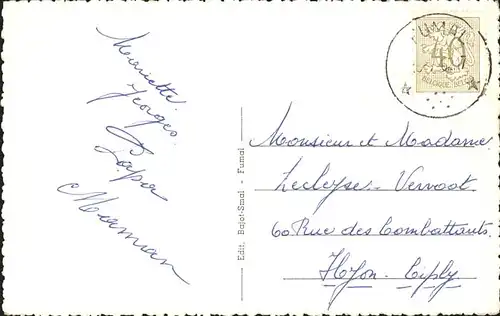 Mariette
Georges
Papa
Maman
Edit. Bajot-Smal - Fumal
FUMAL
40
BELGIQUE-BELGIE
Monsieur et Madame
Lecloyse-Vervoot
60 Rue des Combattants
Hyon-Ciply